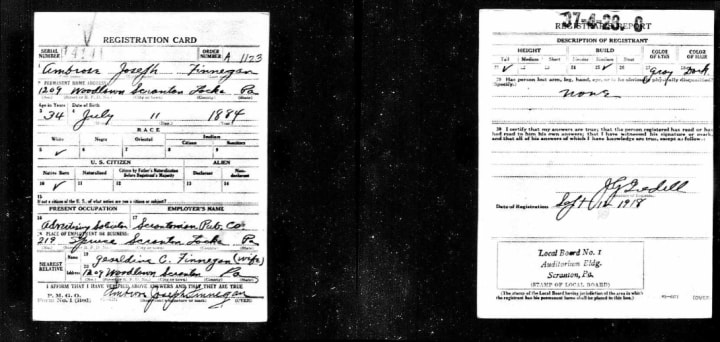 REGISTRATION CARD
SERIAL NUMBER
ORDER NUMBER A 1123
1 Ambrose Joseph Finnegan
2 PERMANENT HOME ADDRESS:
1209 Woodlawn Scranton Lacka Pa
Age in Years Date of Birth
3 34 4 July 11 1884
RACE
White Negro Oriental Indian
Citizen Noncitizen
5 ✓ 6 7 8 9
U. S. CITIZEN ALIEN
Native Born Naturalized Citizen by Father's Naturalization Before Registrant's Majority Declarant Non-declarant
10 ✓ 11 12 13 14
15
If not a citizen of the U. S., of what nation are you a citizen or subject?
PRESENT OCCUPATION EMPLOYER'S NAME
16 17
Advertising Solicitor Scrantonian Pub. Co.
18 PLACE OF EMPLOYMENT OR BUSINESS:
219 Spruce Scranton Lacka Pa
NEAREST RELATIVE
Name 19 Geraldine C. Finnegan (wife)
Address 20 1209 Woodlawn Scranton Pa
I AFFIRM THAT I HAVE VERIFIED ABOVE ANSWERS AND THAT THEY ARE TRUE
P. M. G. O.
Form No. 1 (Red)
Ambrose Joseph Finnegan
37-4-23. C
REGISTRAR'S REPORT
DESCRIPTION OF REGISTRANT
HEIGHT BUILD COLOR OF EYES COLOR OF HAIR
Tall Medium Short Slender Medium Stout
Gray Dark
29 Has person lost arm, leg, hand, eye, or is he obviously physically disqualified?
Specify.
none
30 I certify that my answers are true; that the person registered has read or has
had read to him his own answers; that I have witnessed his signature or mark,
and that all of his answers of which I have knowledge are true, except as follows:
Date of Registration Sept 12 1918
Local Board No. 1
Auditorium Bldg.
Scranton, Pa.
(STAMP OF LOCAL BOARD)
(The stamp of the Local Board having jurisdiction of the area in which
the registrant has his permanent home shall be placed in this box.)
(OVER)